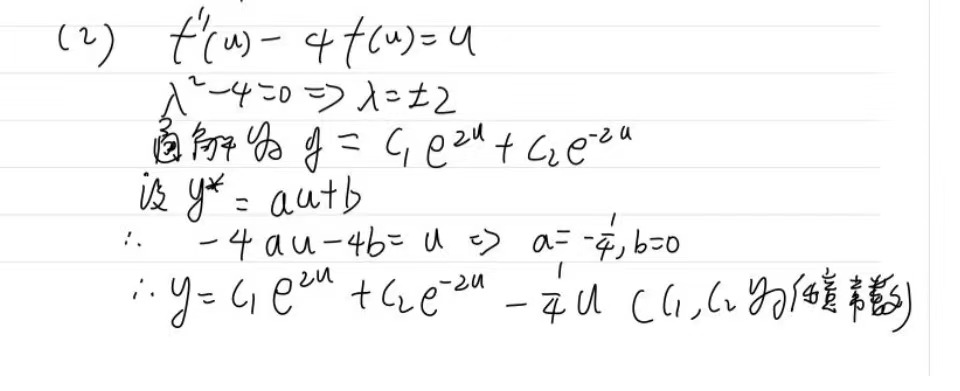 (2) f''(u) - 4f(u) = u
λ² - 4 = 0 => λ = ±2
通解为 y = C₁e^{2u} + C₂e^{-2u}
设 y* = au+b
∴ -4au - 4b = u => a = -1/4, b=0
∴ y = C₁e^{2u} + C₂e^{-2u} - 1/4 u (C₁, C₂ 为任意常数)